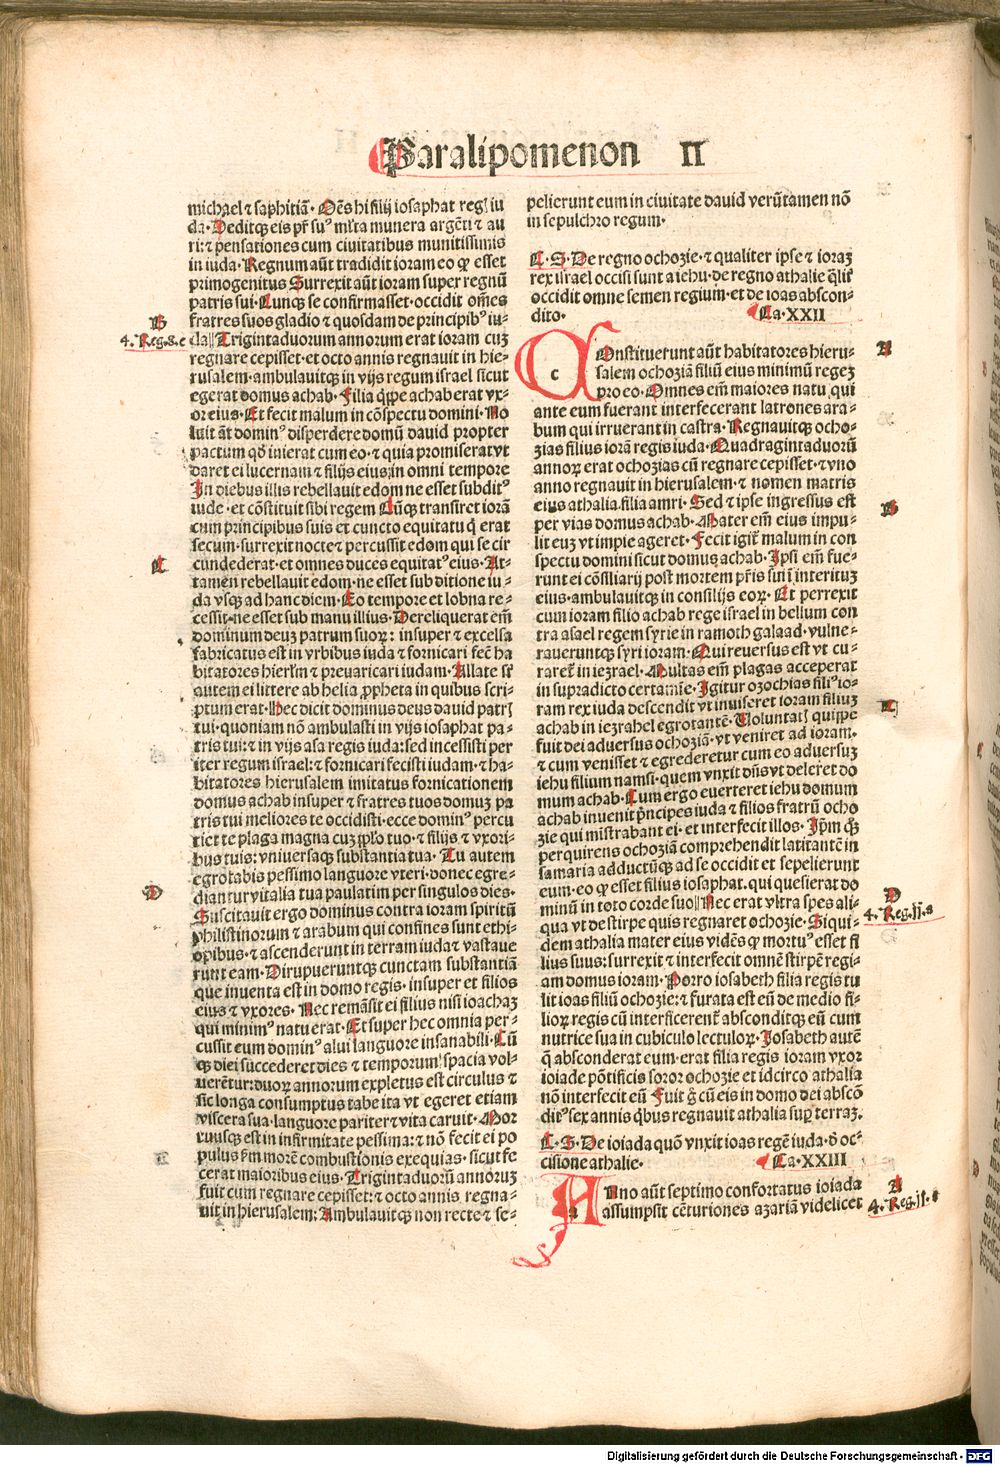 Paralipomenon II
michael ⁊ saphitiā. Oēs hi filij iosaphat regꝭ iu
da. Deditqꝫ eis pr̄ suꝰ mlta munera argēti ⁊ au
ri: ⁊ pensationes cum ciuitatibus munitissimis
in iuda. Regnum aūt tradidit ioram eo ꝙ esset
primogenitus Surrexit aūt ioram super regnū
patris sui. Cunqꝫ se confirmasset. occidit om̄es
fratres suos gladio ⁊ quosdam de principibꝰ iu-
B
4. Reg. 8. e
da|| Trigintaduorum annorum erat ioram cuꝫ
regnare cepisset. et octo annis regnauit in hie-
rusalem. ambulauitqꝫ in vijs regum israel sicut
egerat domus achab. Filia q̄ppe achab erat vx-
or eius. Et fecit malum in cōspectu domini. No
luit āt dominꝰ disperdere domū dauid propter
pactum qđ inierat cum eo. ⁊ quia promiserat vt
daret ei lucernam ⁊ filijs eius in omni tempore
In diebus illis rebellauit edom ne esset subditꝰ
iude. et cōstituit sibi regem Cūqꝫ transiret iorā
cum principibus suis et cuncto equitatu q̄ erat
secum. surrexit nocte ⁊ percussit edom qui se cir
C
cundederat. et omnes duces equitatꝰ eius. At-
tamen rebellauit edom. ne esset sub ditione iu-
da vsqꝫ ad hanc diem. Eo tempore et lobna re-
cessit. ne esset sub manu illius. Dereliquerat em̄
dominum deuꝫ patrum suoꝝ: insuper ⁊ excelsa
fabricatus est in vrbibus iuda ⁊ fornicari fec̄ ha
bitatores hierl̄m ⁊ preuaricari iudam. Allate st̄
autem ei littere ab helia ꝓpheta in quibus scri-
ptum erat. Hec dicit dominus deus dauid patrꝭ
tui. quoniam nō ambulasti in vijs iosaphat pa-
tris tui: ⁊ in vijs asa regis iuda: sed incessisti per
iter regum israel: ⁊ fornicari fecisti iudam. ⁊ ha-
bitatores hierusalem imitatus fornicationem
domus achab insuper ⁊ fratres tuos domuꝫ pa
tris tui meliores te occidisti. ecce dominꝰ percu
tiet te plaga magna cuꝫ pplo tuo. ⁊ filijs ⁊ vxori-
bus tuis: vniuersaqꝫ substantia tua. Tu autem
egrotabis pessimo languore vteri. donec egre-
D
diantur vitalia tua paulatim per singulos dies.
Suscitauit ergo dominus contra ioram spiritū
philistinorum ⁊ arabum qui confines sunt ethi-
opibus. ⁊ ascenderunt in terram iuda ⁊ vastaue
runt eam. Diripueruntqꝫ cunctam substantiā
que inuenta est in domo regis. insuper et filios
eius ⁊ vxores. Nec remāsit ei filius nisi ioachaꝫ
qui minimꝰ natu erat. Et super hec omnia per-
cussit eum dominꝰ alui languore insanabili. Cū
qꝫ diei succederet dies ⁊ temporum spacia vol-
uerētur: duoꝝ annorum expletus est circulus ⁊
sic longa consumptus tabe ita vt egeret etiam
viscera sua. languore pariter ⁊ vita caruit. Mor
tuusqꝫ est in infirmitate pessima: ⁊ nō fecit ei po
pulus s̄m morē combustionis exequias. sicut fe
cerat maioribus eius. Trigintaduorū annoruꝫ
fuit cum regnare cepisset: ⁊ octo annis regna-
uit in hierusalem: Ambulauitqꝫ non recte ⁊ se-
pelierunt eum in ciuitate dauid verūtamen nō
in sepulchro regum.
C. S. De regno ochozie. ⁊ qualiter ipse ⁊ ioraꝫ
rex israel occisi sunt a iehu. de regno athalie q̄lit̄
occidit omne semen regium. et de ioas abscon-
dito. Ca. XXII
A
c Onstituerunt aūt habitatores hieru-
salem ochoziā filiū eius minimū regeꝫ
pro eo. Omnes em̄ maiores natu qui
ante eum fuerant interfecerant latrones ara-
bum qui irruerant in castra. Regnauitqꝫ ocho-
zias filius iorā regis iuda. Quadragintaduorū
annoꝝ erat ochozias cū regnare cepisset. ⁊ vno
anno regnauit in hierusalem. ⁊ nomen matris
eius athalia filia amri. Sed ⁊ ipse ingressus est
B
per vias domus achab. Mater em̄ eius impu-
lit euꝫ vt impie ageret. Fecit igit̄ malum in con
spectu domini sicut domus achab. Ipsi em̄ fue-
runt ei cōsiliarij post mortem pr̄is sui ī interituꝫ
eius. ambulauitqꝫ in consilijs eoꝝ. Et perrexit
cum ioram filio achab rege israel in bellum con
tra asael regem syrie in ramoth galaad. vulne-
raueruntqꝫ syri ioram. Qui reuersus est vt cu-
raret̄ in iezrael. Multas em̄ plagas acceperat
in supradicto certamīe. Igitur ozochias filiꝰ io-
C
ram rex iuda descendit vt inuiseret ioram filiuꝫ
achab in iezrahel egrotantē. Voluntatꝭ quippe
fuit dei aduersus ochoziā. vt veniret ad ioram.
⁊ cum venisset ⁊ egrederetur cum eo aduersuꝫ
iehu filium namsi. quem vnxit dn̄s vt deleret do
mum achab. Cum ergo euerteret iehu domum
achab inuenit pncipes iuda ⁊ filios fratrū ocho
zie qui mistrabant ei. et interfecit illos. Ipm̄ qꝫ
perquirens ochoziā comprehendit latitantē in
samaria adductūqꝫ ad se occidit et sepelierunt
eum. eo ꝙ esset filius iosaphat. qui quesierat do
D
4. Reg. jj. a
minū in toto corde suo|| Nec erat vltra spes ali-
qua vt de stirpe quis regnaret ochozie. Siqui-
dem athalia mater eius vidēs ꝙ mortuꝰ esset fi
lius suus: surrexit ⁊ interfecit omnē stirpē regi-
am domus ioram. Porro iosabeth filia regis tu
lit ioas filiū ochozie: ⁊ furata est eū de medio fi-
lioꝝ regis cū interficerent̄ absconditqꝫ eū cum
nutrice sua in cubiculo lectuloꝝ. Iosabeth autē
q̄ absconderat eum. erat filia regis ioram vxor
ioiade pōtificis soror ochozie et idcirco athalia
nō interfecit eū Fuit g̊ cū eis in domo dei abscō
ditꝰ sex annis qbus regnauit athalia sup terraꝫ.
C. S. De ioiada quō vnxit ioas regē iuda. ⁊ oc-
cisione athalie. Ca. XXIII
A
4. Reg. jj. e
a Nno aūt septimo confortatus ioiada
assumpsit cēturiones azariā videlicet
Digitalisierung gefördert durch die Deutsche Forschungsgemeinschaft - DFG